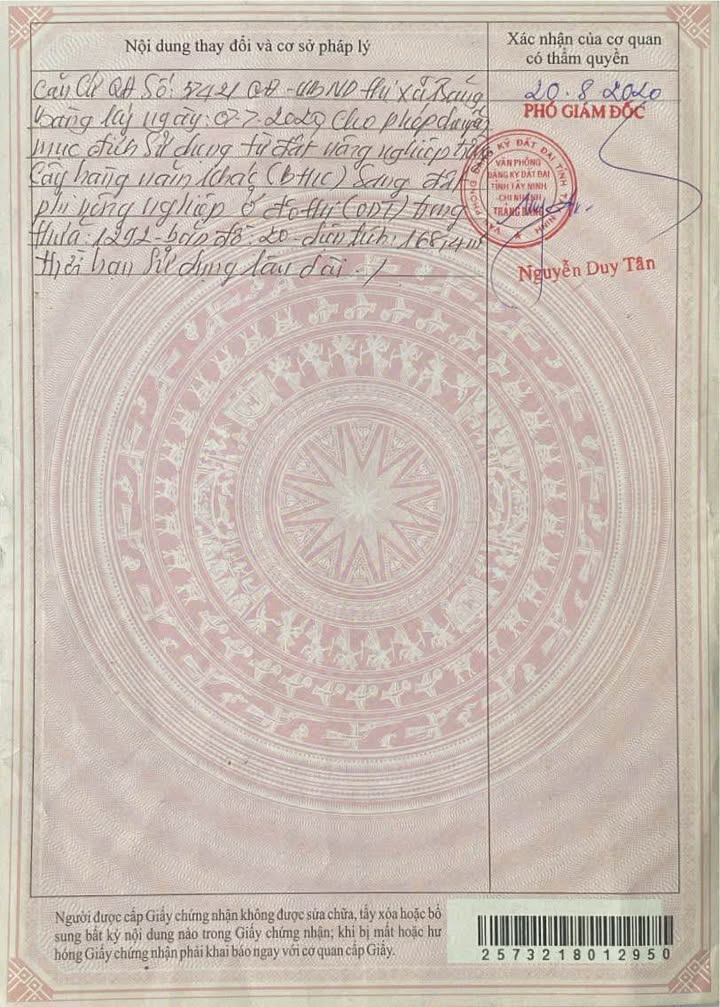 Nội dung thay đổi và cơ sở pháp lý
Xác nhận của cơ quan
có thẩm quyền
Căn Cứ QĐ Số: 5421 QĐ-UBND thị xã Trảng
Bàng ký ngày: 07.7.2020, cho phép chuyển
mục đích Sử dụng từ đất nông nghiệp trồng
Cây hàng năm khác (BHK) Sang đất
phi nông nghiệp ở đô thị (ODT) trong
thửa: 1292-bản đồ: 20-diện tích: 168,4m²
thời hạn Sử dụng lâu dài ./
20.8 2020
PHÓ GIÁM ĐỐC
VĂN PHÒNG
ĐĂNG KÝ ĐẤT ĐAI
TỈNH TÂY NINH
CHI NHÁNH
TRẢNG BÀNG
Nguyễn Duy Tân
Người được cấp Giấy chứng nhận không được sửa chữa, tẩy xóa hoặc bổ
sung bất kỳ nội dung nào trong Giấy chứng nhận; khi bị mất hoặc hư
hỏng Giấy chứng nhận phải khai báo ngay với cơ quan cấp Giấy.
2573218012950